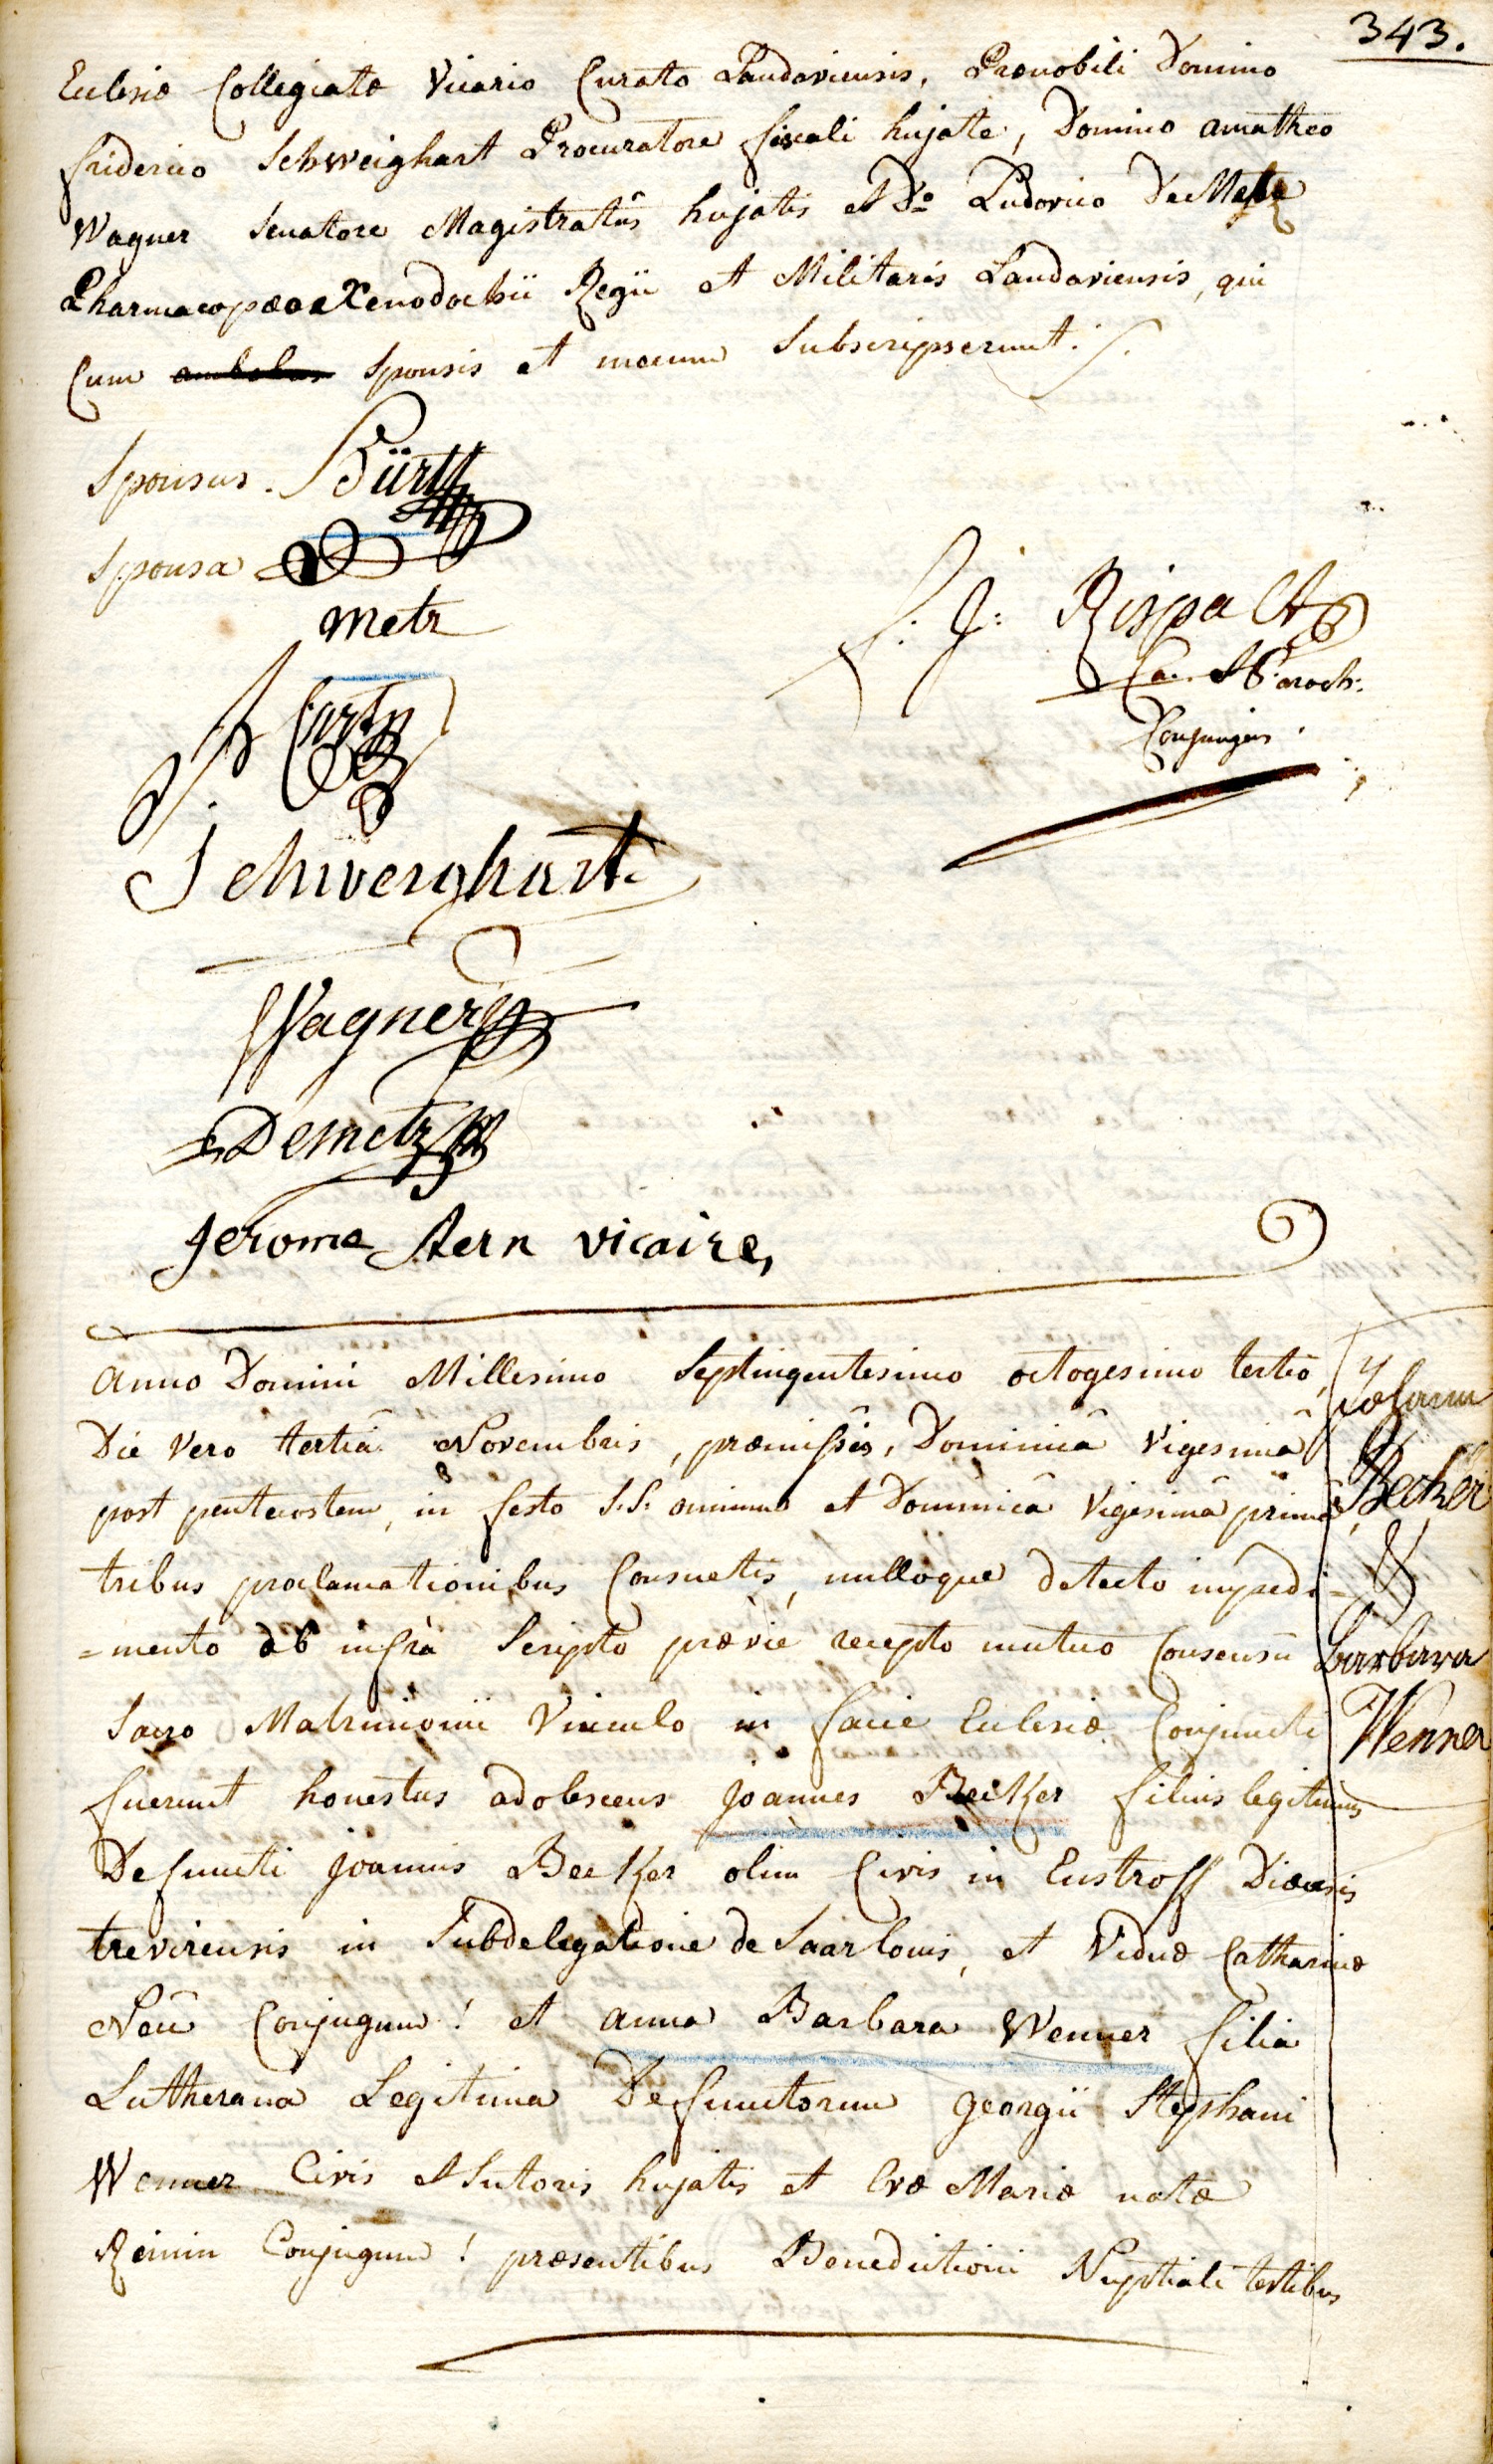 343.
Ecclesiæ Collegiatæ Vicario Curato Landaviensis, Prænobili Domino
friderico Schweighart Procuratore fiscali hujate, Domino amatheo
Wagner Senatore Magistratûs hujatis et Dº Ludovico De Metz
Pharmacopæo Xenodochii Regii et Militaris Landaviensis, qui
Cum ambobus Sponsis et mecum Subscripserunt ./.
Sponsus. Bürtz
Sponsa
metz
f: J: Rispa
Ca. et Paroch:
Conjungens.
Schweighart.
Wagner
Demetz
Jerome Stern vicaire,
Anno Domini Millesimo Septingentesimo octogesimo tertio,
Die Vero tertiâ Novembris, præmissis, Dominicâ Vigesimâ
post pentecostem, in festo S.S. omnium et Dominicâ Vigesimâ primâ,
tribus proclamationibus Consuetis, nulloque detecto impedi=
=mento ab infrà Scripto prævie recepto mutuo Consensu
Sacro Matrimonii Vinculo in facie Ecclesiæ Conjuncti
fuerunt honestus adolescens Joannes Becker filius legitimus
Defuncti Joannis Becker olim Civis in Eustroff Diœcesis
trevirensis in Subdelegatione de Saarlouis, et Viduæ Catharinæ
Neü Conjugum! et anna Barbara Wenner filia
Lutherana Legitima Defunctorum Georgii Stephani
Wenner Civis et Sutoris hujatis et Evæ Mariæ natæ
Reinin Conjugum! præsentibus Benedictioni Nuptiali testibus
Johann
Becker
&
barbara
Wenner